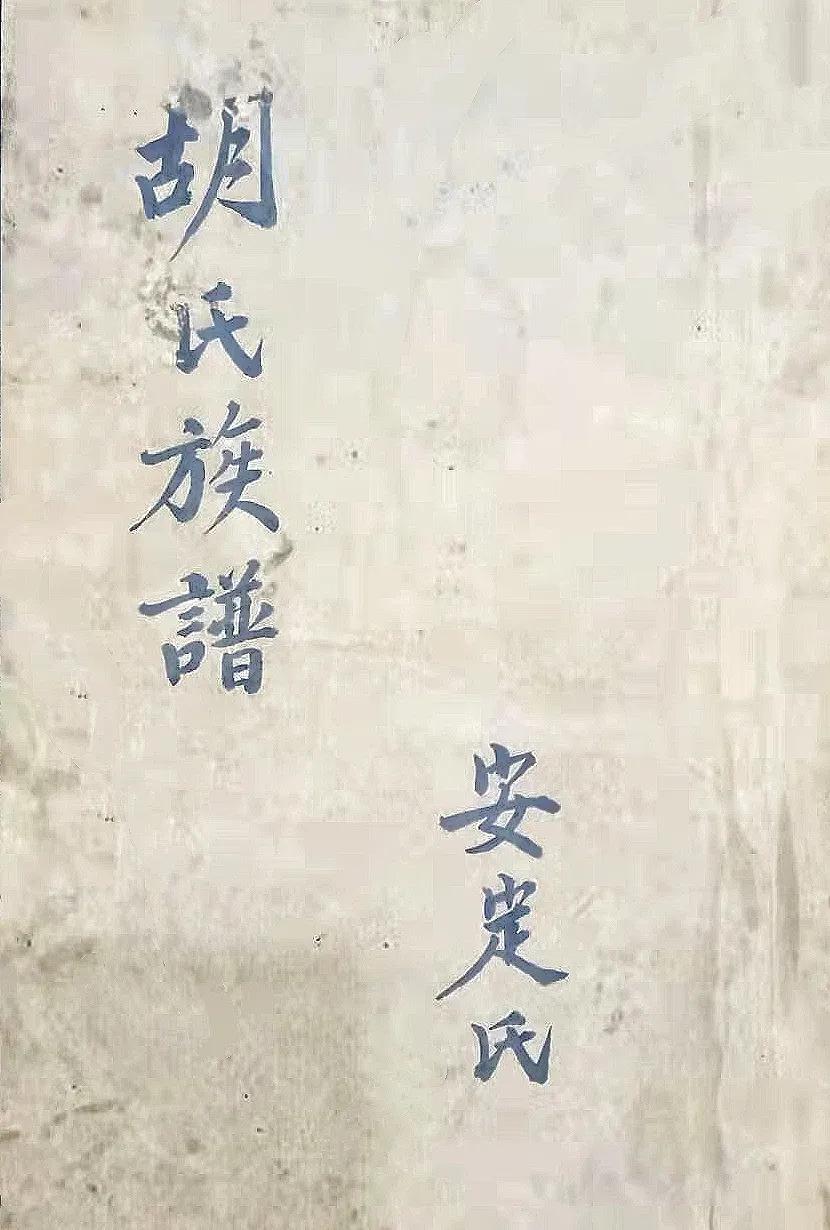 胡氏族譜
安定氏